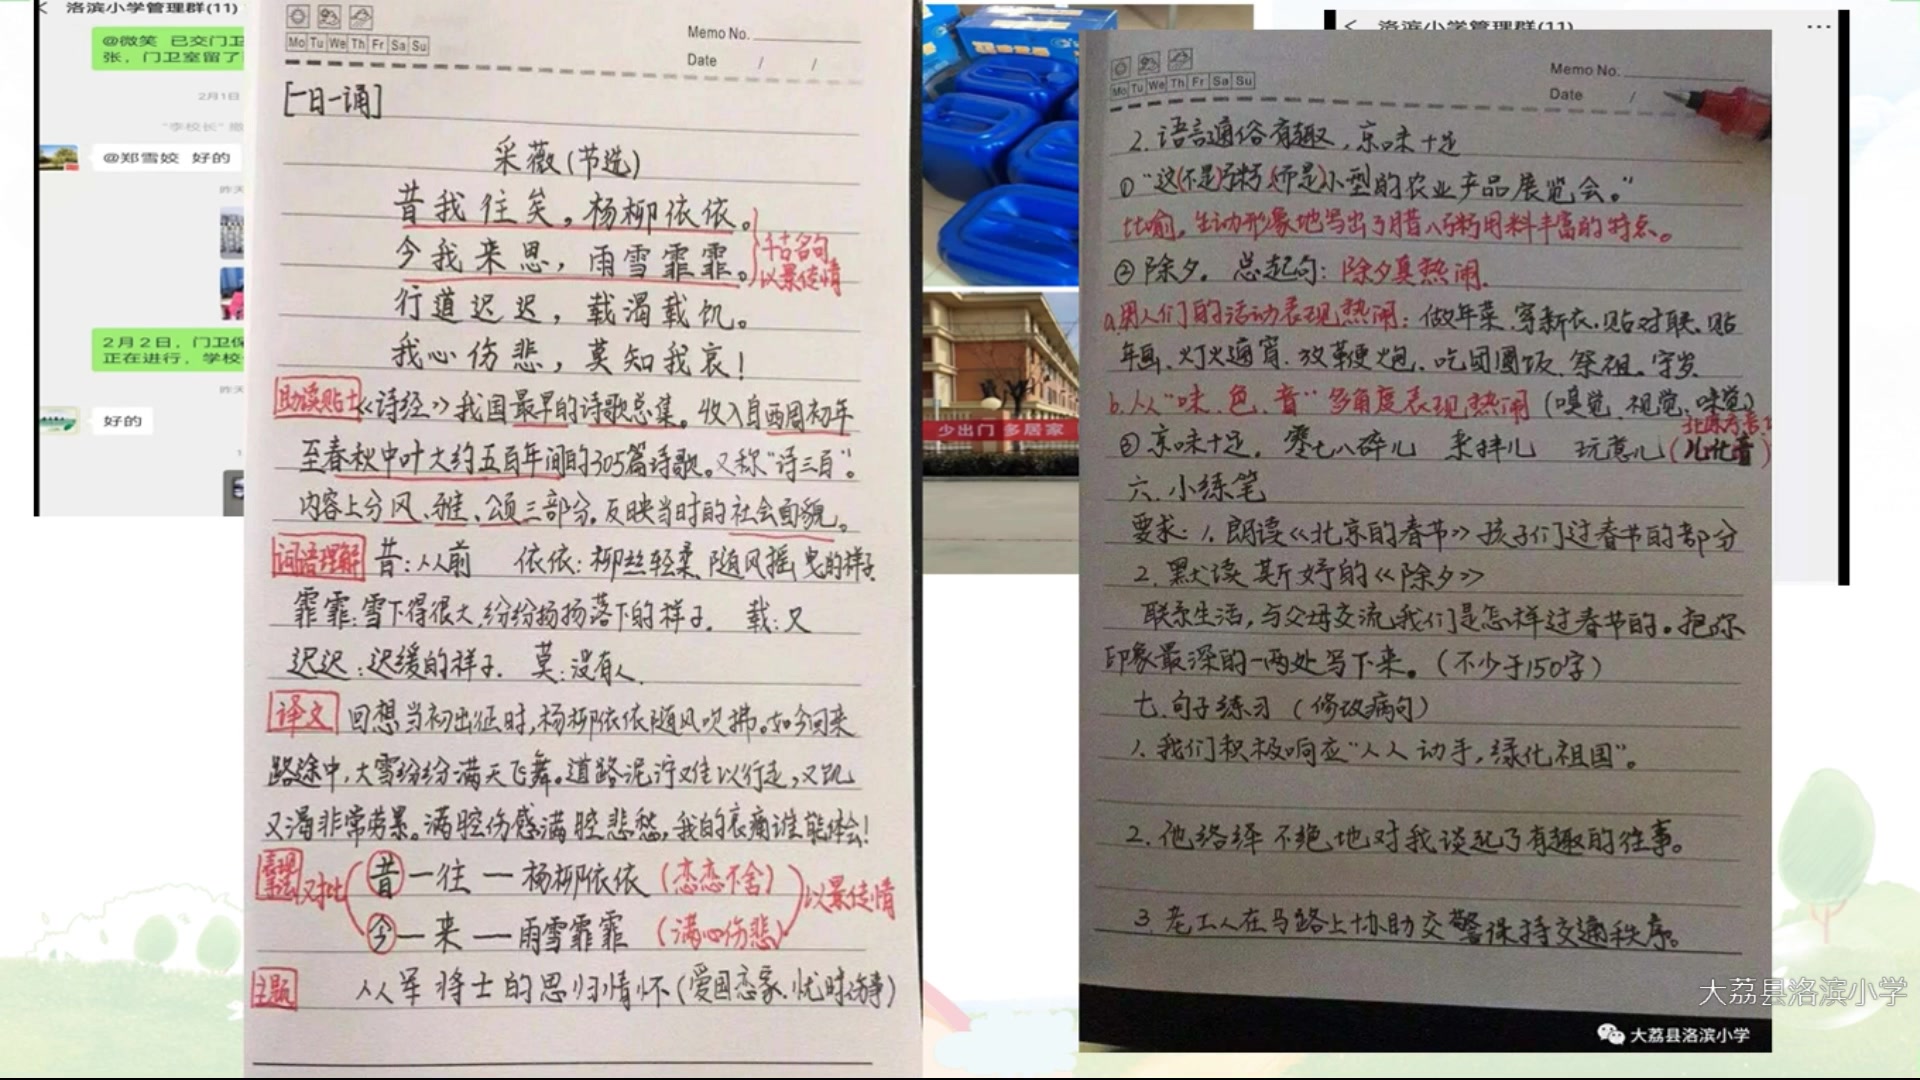 洛滨小学管理群(11)
@微笑 已交门卫
张，门卫室留了
2月1日
"李校长" 撤
@郑雪姣 好的
昨天
2月2日，门卫保
正在进行，学校
昨天
好的
Mo Tu We Th Fr Sa Su
Memo No.
Date / /
[一日一诵]
采薇(节选)
昔我往矣，杨柳依依。
今我来思，雨雪霏霏。
千古名句
以景传情
行道迟迟，载渴载饥。
我心伤悲，莫知我哀！
助读贴士 《诗经》我国最早的诗歌总集。收入自西周初年
至春秋中叶大约五百年间的305篇诗歌。又称"诗三百"。
内容上分风、雅、颂三部分。反映当时的社会面貌。
词语理解 昔：从前 依依：柳丝轻柔、随风摇曳的样子
霏霏：雪下得很大，纷纷扬扬落下的样子. 载：又
迟迟：迟缓的样子. 莫：没有人.
译文 回想当初出征时，杨柳依依随风吹拂。如今回来
路途中，大雪纷纷满天飞舞。道路泥泞难以行走，又饥
又渴非常劳累。满腔伤感满腔悲愁，我的哀痛谁能体会！
表现手法 对比 昔一往一杨柳依依(恋恋不舍)
今一来一雨雪霏霏(满心伤悲)
以景传情
主题 从军将士的思归情怀(爱国恋家、忧时伤事)
少出门 多居家
洛滨小学管理群(11)
Mo Tu We Th Fr Sa Su
Memo No.
Date /
2. 语言通俗有趣，京味十足
①"这(不是)粥，(而是)小型的农业产品展览会。"
比喻，生动形象地写出了腊八粥用料丰富的特点。
②除夕。总起句：除夕真热闹.
a.用人们的活动表现热闹：做年菜、穿新衣、贴对联、贴
年画、灯火通宵、放鞭炮、吃团圆饭、祭祖、守岁
b.从"味、色、音"多角度表现热闹(嗅觉、视觉、味觉)
③京味十足。零七八碎儿 杂拌儿 玩意儿(儿化音)
六、小练笔
要求：1. 朗读《北京的春节》孩子们过春节的部分
2. 默读斯妤的《除夕》
联系生活，与父母交流我们是怎样过春节的。把你
印象最深的一两处写下来。(不少于150字)
七.句子练习 (修改病句)
1. 我们积极响应"人人动手，绿化祖国"。
2. 他络绎不绝地对我谈起了有趣的往事。
3. 老工人在马路上协助交警保持交通秩序。
大荔县洛滨小学
大荔县洛滨小学